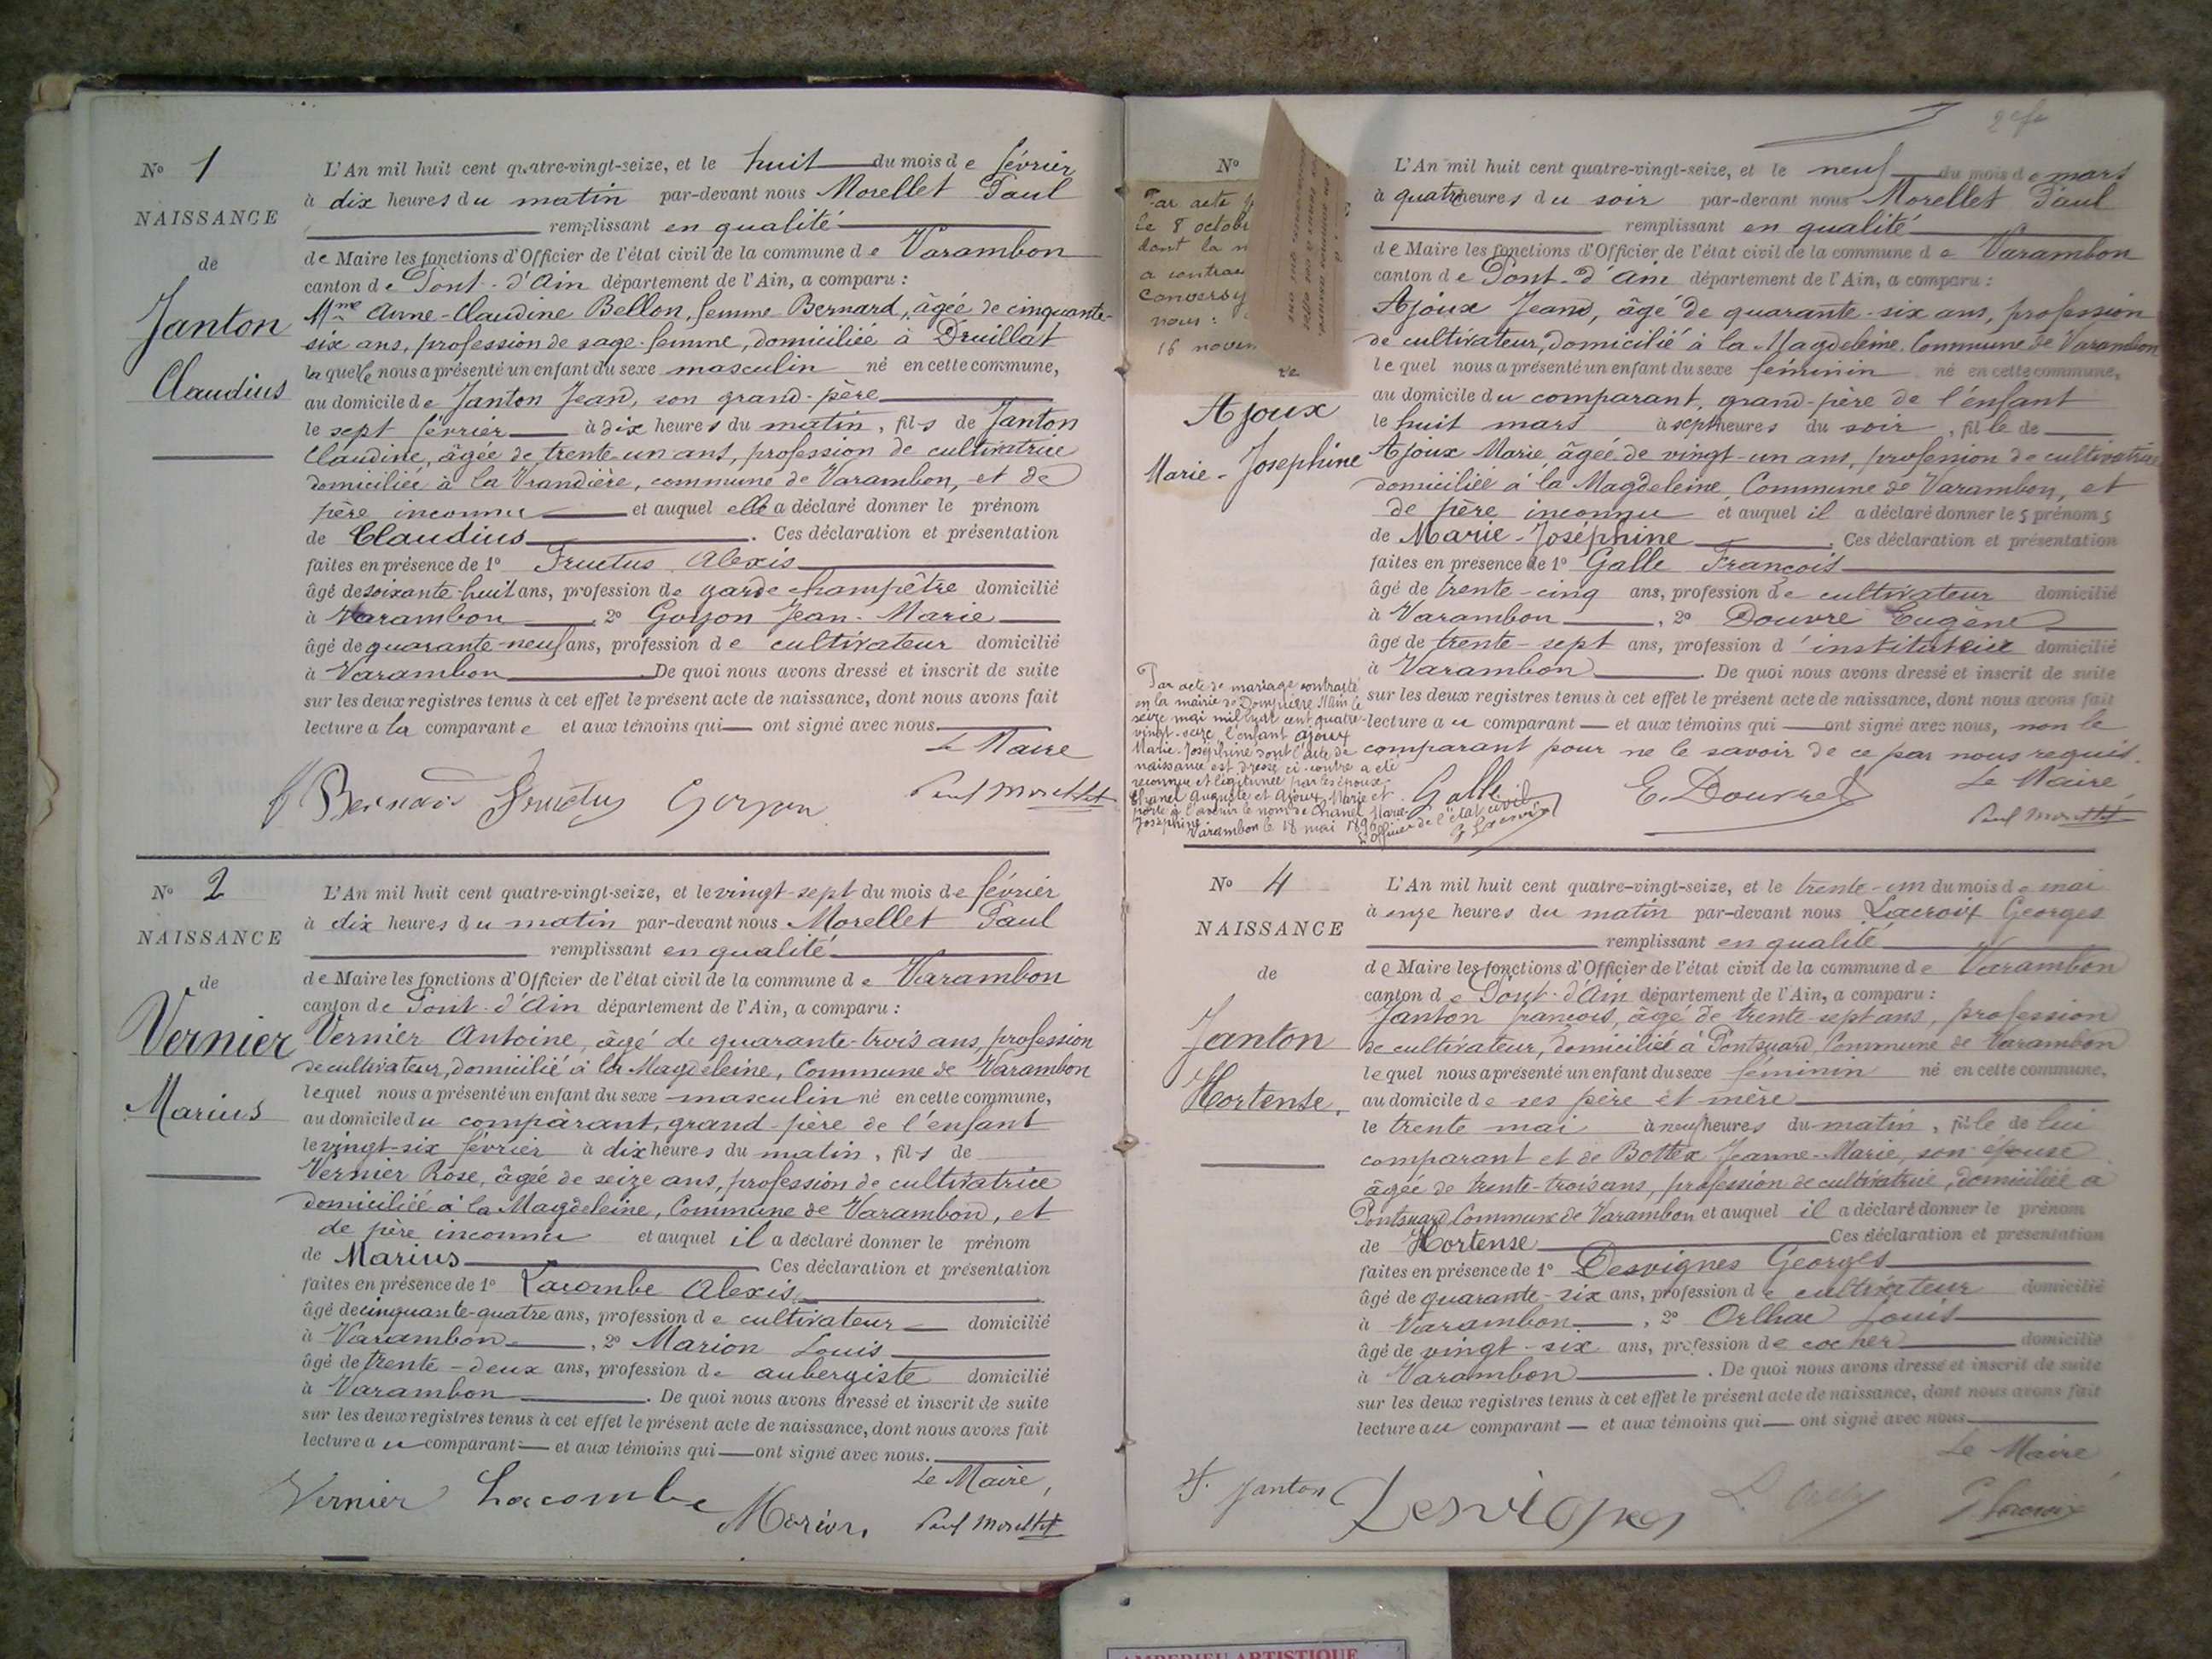 No 1
NAISSANCE
de
Janton
Claudius
L'An mil huit cent quatre-vingt-seize, et le huit du mois de février
à dix heures du matin par-devant nous Morellet Paul
remplissant en qualité
de Maire les fonctions d'Officier de l'état civil de la commune de Varambon
canton de Pont-d'Ain département de l'Ain, a comparu :
Mme Anne-Claudine Bellon, femme Bernard, âgée de cinquante-
six ans, profession de sage-femme, domiciliée à Druillat
laquelle nous a présenté un enfant du sexe masculin né en cette commune,
au domicile de Janton Jean, son grand-père
le sept février à dix heures du matin, fils de Janton
Claudine, âgée de trente-un ans, profession de cultivatrice
domiciliée à la Vrandière, commune de Varambon, et de
père inconnu et auquel elle a déclaré donner le prénom
de Claudius. Ces déclaration et présentation
faites en présence de 1° Fructus Alexis
âgé de soixante-huit ans, profession de garde champêtre domicilié
à Varambon, 2° Goyon Jean-Marie
âgé de quarante-neuf ans, profession de cultivateur domicilié
à Varambon De quoi nous avons dressé et inscrit de suite
sur les deux registres tenus à cet effet le présent acte de naissance, dont nous avons fait
lecture a la comparante et aux témoins qui ont signé avec nous.
Le Maire
f Bernard Fructus Goyon Paul Morellet
No 2
NAISSANCE
de
Vernier
Marius
L'An mil huit cent quatre-vingt-seize, et le vingt-sept du mois de février
à dix heures du matin par-devant nous Morellet Paul
remplissant en qualité
de Maire les fonctions d'Officier de l'état civil de la commune de Varambon
canton de Pont-d'Ain département de l'Ain, a comparu :
Vernier Antoine, âgé de quarante-trois ans, profession
de cultivateur, domicilié à la Magdeleine, Commune de Varambon
lequel nous a présenté un enfant du sexe masculin né en cette commune,
au domicile du comparant, grand-père de l'enfant
le vingt-six février à dix heures du matin, fils de
Vernier Rose, âgée de seize ans, profession de cultivatrice
domiciliée à la Magdeleine, Commune de Varambon, et
de père inconnu et auquel il a déclaré donner le prénom
de Marius Ces déclaration et présentation
faites en présence de 1° Lacombe Alexis,
âgé de cinquante-quatre ans, profession de cultivateur domicilié
à Varambon, 2° Marion Louis
âgé de trente-deux ans, profession de aubergiste domicilié
à Varambon. De quoi nous avons dressé et inscrit de suite
sur les deux registres tenus à cet effet le présent acte de naissance, dont nous avons fait
lecture au comparant et aux témoins qui ont signé avec nous.
Le Maire,
Vernier Lacombe Marion, Paul Morellet
No
Par acte
le 8 octob
dont la m
a contrac
Conversy
nous :
16 noven
Ajoux
Marie-Josephine
L'An mil huit cent quatre-vingt-seize, et le neuf du mois de mars
à quatre heures du soir par-devant nous Morellet Paul
remplissant en qualité
de Maire les fonctions d'Officier de l'état civil de la commune de Varambon
canton de Pont-d'Ain département de l'Ain, a comparu :
Ajoux Jean, âgé de quarante-six ans, profession
de cultivateur, domicilié à la Magdeleine, Commune de Varambon
lequel nous a présenté un enfant du sexe féminin né en cette commune,
au domicile du comparant, grand-père de l'enfant
le huit mars à sept heures du soir, fille de
Ajoux Marie, âgée de vingt-un ans, profession de cultivatrice
domiciliée à la Magdeleine, Commune de Varambon, et
de père inconnu et auquel il a déclaré donner les prénoms
de Marie-Joséphine. Ces déclaration et présentation
faites en présence de 1° Galle François
âgé de trente-cinq ans, profession de cultivateur domicilié
à Varambon, 2° Douvre Eugène
âgé de trente-sept ans, profession d'instituteur domicilié
à Varambon. De quoi nous avons dressé et inscrit de suite
sur les deux registres tenus à cet effet le présent acte de naissance, dont nous avons fait
lecture au comparant et aux témoins qui ont signé avec nous, non le
comparant pour ne le savoir de ce par nous requis.
Galle E. Douvre Le Maire
Paul Morellet
Par acte de mariage contracté
en la mairie de Dompierre /Ain le
seize mai mil huit cent quatre-
vingt-seize l'enfant Ajoux
Marie-Joséphine dont l'acte de
naissance est dressé ci-contre a été
reconnue et légitimée par les époux
Chanel Auguste et Ajoux Marie et
porte à l'avenir le nom de Chanel Marie-
Joséphine
Varambon le 18 mai 1896
L'Officier de l'état civil
G Lacroix
No 4
NAISSANCE
de
Janton
Hortense.
L'An mil huit cent quatre-vingt-seize, et le trente-un du mois de mai
à onze heures du matin par-devant nous Lacroix Georges
remplissant en qualité
de Maire les fonctions d'Officier de l'état civil de la commune de Varambon
canton de Pont-d'Ain département de l'Ain, a comparu :
Janton françois, âgé de trente-sept ans, profession
de cultivateur, domicilié à Pontsuard, Commune de Varambon
lequel nous a présenté un enfant du sexe féminin né en cette commune,
au domicile de ses père et mère
le trente mai à neuf heures du matin, fille de lui
comparant et de Bottex Jeanne-Marie, son épouse
âgée de trente-trois ans, profession de cultivatrice, domiciliée à
Pontsuard Commune de Varambon et auquel il a déclaré donner le prénom
de Hortense Ces déclaration et présentation
faites en présence de 1° Desvignes Georges
âgé de quarante-six ans, profession de cultivateur domicilié
à Varambon, 2° Orlhac Louis
âgé de vingt-six ans, profession de cocher domicilié
à Varambon. De quoi nous avons dressé et inscrit de suite
sur les deux registres tenus à cet effet le présent acte de naissance, dont nous avons fait
lecture au comparant et aux témoins qui ont signé avec nous
Le Maire
F. Janton Desvignes G Lacroix
AMBERIEU ARTISTIQUE